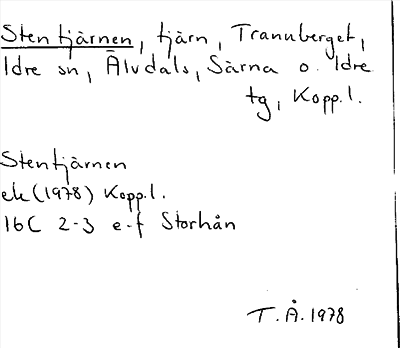 Stentjärnen, tjärn, Trannberget,
Idre sn, Älvdals, Särna o. Idre
tg, Kopp.l.
Stentjärnen
ek (1978) Kopp.l.
16C 2-3 e-f Storhån
T.Å. 1978